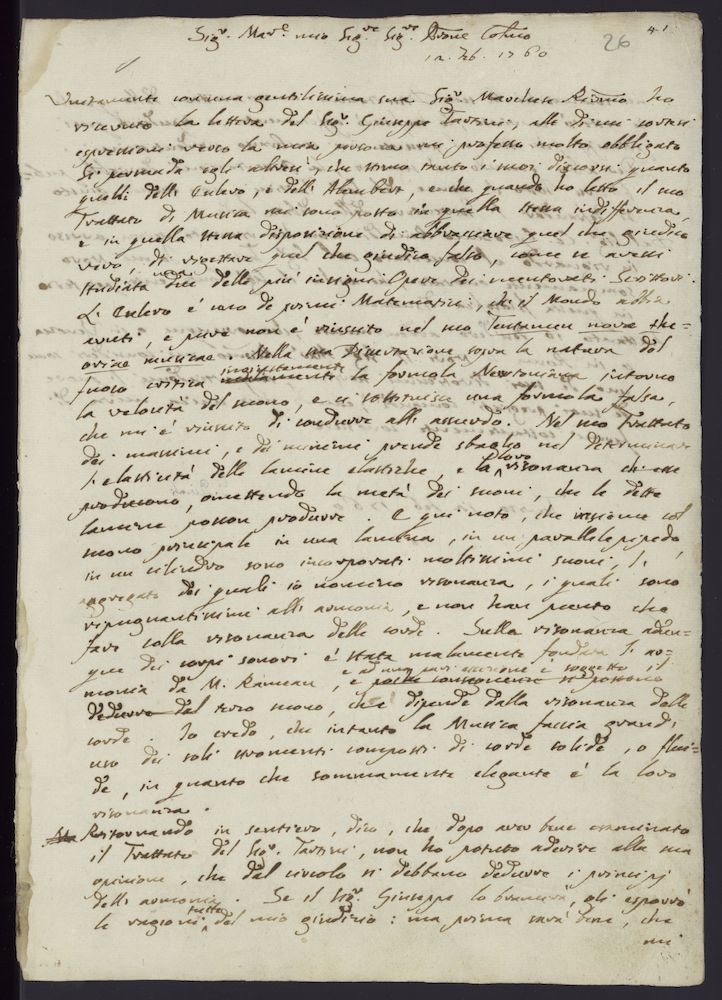 26
41
Sig.r Mar.e mio Sig.re Sig.re Prone Colmo
12. Feb. 1760
Unitamente con una gentilissima sua Sig.r Marchese Riv̄mo ho
ricevuto la lettera del Sig.r Giuseppe Tartini, alle di cui cortesi
espressioni verso la mia persona mi professo molto obbligato
Si persuada egli altresì, che stimo tanto i suoi discorsi quanto
quelli dell'Eulero, e dell'Alembert, e che quando ho letto il suo
Trattato di Musica mi sono posto in quella stessa indifferenza,
e in quella stessa disposizione di abbracciare quel che giudico
vero, di rigettare quel che giudico falso, come se avessi
studiata una delle più insigni Opere dei mentovati Scrittori.
L'Eulero è uno de primi Matematici, che il Mondo abbia
avuti, e pure non è riuscito nel suo Tentamen novae the=
oriae musicae. Nella sua Dissertazione sopra la natura del
fuoco critica ingiustamente la formola Newtoniana intorno
la velocità del suono, e ci sostituisce una formola falsa,
che mi è riuscito di condurre all'assurdo. Nel suo Trattato
dei massimi, e dei minimi prende sbaglio nel determinar
l'elasticità delle lamine elastiche, e la loro risonanza che esse
producono, omettendo la metà dei suoni, che le dette
lamine posson produrre. E qui noto, che insieme col
suono principale in una lamina, in un parallelepipedo
in un cilindro sono incorporati moltissimi suoni, l'
aggregato dei quali io nomino risonanza, i quali sono
ripugnantissimi all'armonia, e non han punto che
fare colla risonanza delle corde. Sulla risonanza adun=
que dei corpi sonori è stata malamente fondata l'ar=
monia da M. Rameau, e ad una pari eccezione è soggetto il
dedurre dal terzo suono, che dipende dalla risonanza delle
corde. Io credo, che intanto la Musica faccia grand'
uso dei soli stromenti composti di corde solide, o flui=
de, in quanto che sommamente elegante è la loro
risonanza.
Ritornando in sentiero, dico, che dopo aver bene esaminato
il Trattato del Sig.r Tartini, non ho potuto aderire alla sua
opinione, che dal circolo si debbano dedurre i principj
dell'armonia. Se il Sig.r Giuseppe lo bramerà, gli esporrò
le ragioni tutte del mio giudizio: ma prima sarà bene, che
mi